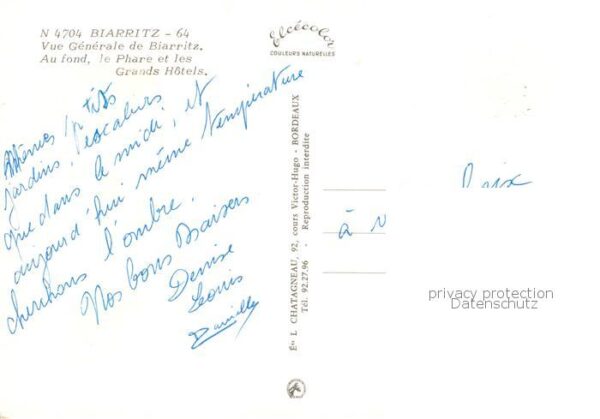 N 4704 BIARRITZ - 64
Vue Générale de Biarritz.
Au fond, le Phare et les
Grands Hôtels.
Elcécolor
COULEURS NATURELLES
Mêmes p'tits
jardins, escaliers
que dans le midi, et
aujourd'hui même température
cherchons l'ombre.
Nos bons Baisers
Denise
Louis
Danielle
Éon L. CHATAGNEAU, 92, cours Victor-Hugo - BORDEAUX
Tél. 92.27.96 - Reproduction interdite
à N
privacy protection
Datenschutz